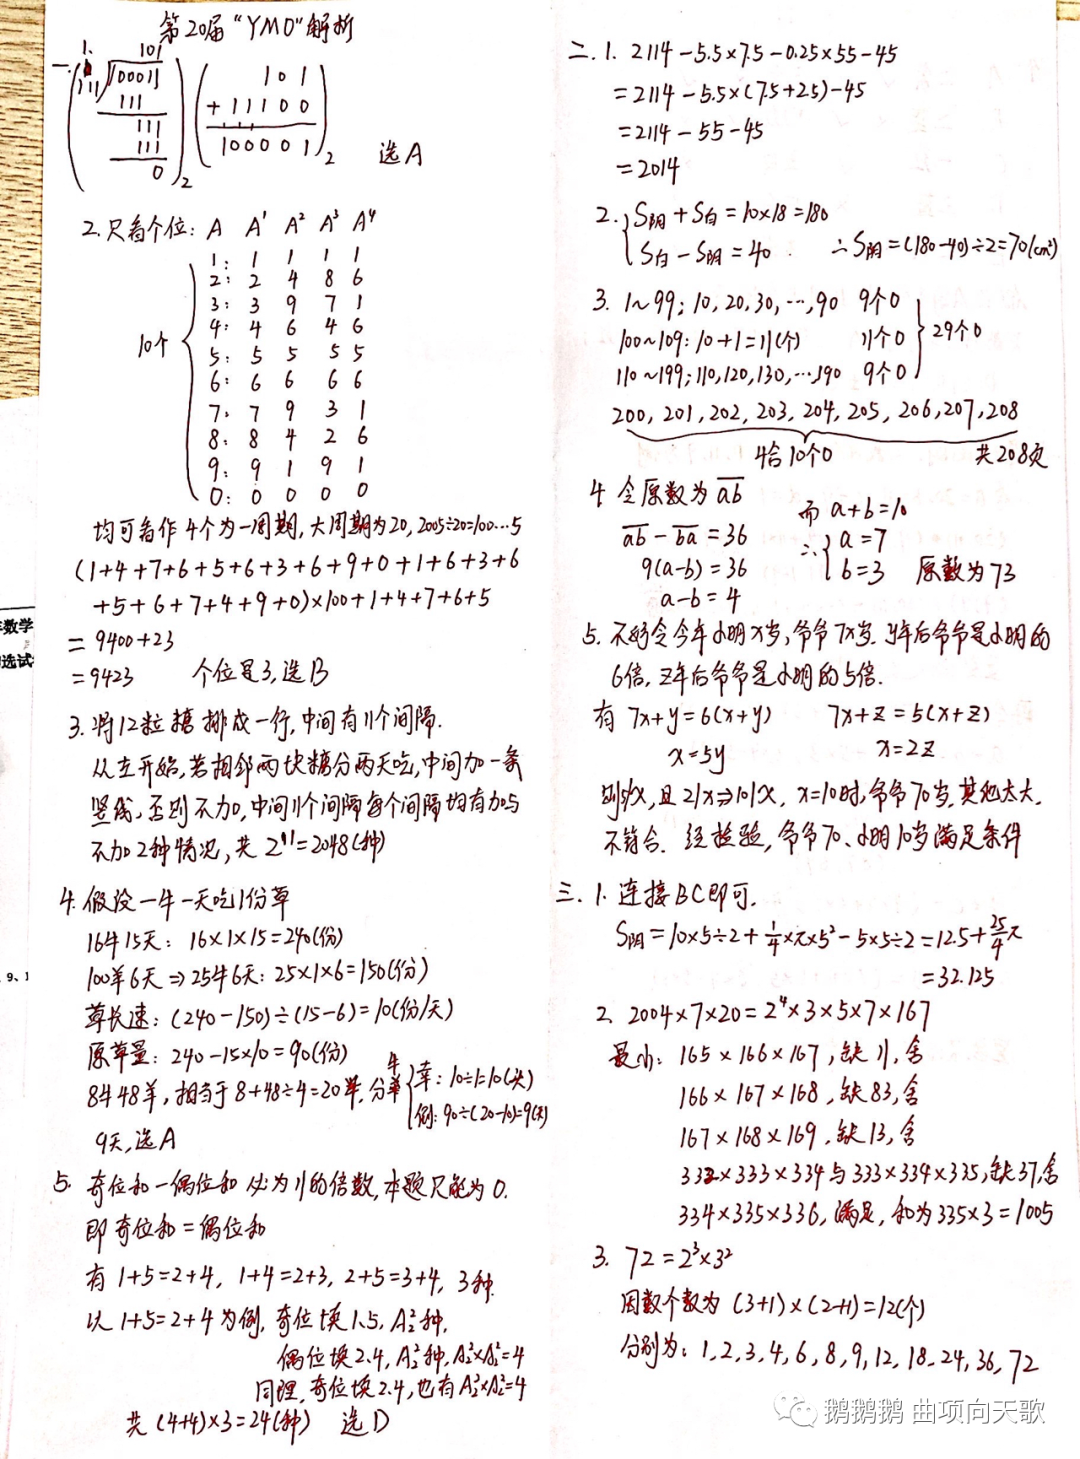 第20届“YMO”解析
一. 1.
101
111 100011
111
111
111
0
2
101
+11100
100001
2
选A
2.只看个位: A A¹ A² A³ A⁴
10个
1: 1 1 1 1
2: 2 4 8 6
3: 3 9 7 1
4: 4 6 4 6
5: 5 5 5 5
6: 6 6 6 6
7: 7 9 3 1
8: 8 4 2 6
9: 9 1 9 1
0: 0 0 0 0
均可看作4个为一周期,大周期为20, 2005÷20=100…5
(1+4+7+6+5+6+3+6+9+0+1+6+3+6
+5+6+7+4+9+0)×100+1+4+7+6+5
=9400+23
=9423 个位是3,选B
3. 将12粒糖排成一行,中间有11个间隔.
从左开始,若相邻两块糖分两天吃,中间加一条
竖线,否则不加,中间11个间隔每个间隔均有加与
不加2种情况,共2¹¹=2048(种)
4. 假设一牛一天吃1份草
16牛15天: 16×1×15=240(份)
100羊6天⇒25牛6天: 25×1×6=150(份)
草长速: (240-150)÷(15-6)=10(份/天)
原草量: 240-15×10=90(份)
8牛48羊,相当于8+48÷4=20牛,分
草: 10÷1=10(头)
例: 90÷(20-10)=9(天)
9天,选A
5. 奇位和-偶位和必为11的倍数,本题只能为0.
即奇位和=偶位和
有1+5=2+4, 1+4=2+3, 2+5=3+4, 3种.
以1+5=2+4为例,奇位填1.5, A₂²种,
偶位填2.4, A₂²种, A₂²×A₂²=4
同理,奇位填2.4,也有A₂²×A₂²=4
共(4+4)×3=24(种) 选D
二. 1. 2114-5.5×7.5-0.25×55-45
=2114-5.5×(7.5+2.5)-45
=2114-55-45
=2014
2. S阴+S白=10×18=180
S白-S阴=40 ∴S阴=(180-40)÷2=70(cm²)
3. 1~99; 10,20,30,…,90 9个0
100~109: 10+1=11(个) 11个0
29个0
110~199; 110,120,130,…,190 9个0
200, 201, 202, 203, 204, 205, 206, 207, 208
4合10个0 共208页
4 令原数为ab 而a+b=10
ab-ba=36 ∴ a=7
9(a-b)=36 b=3 原数为73
a-b=4
5. 不妨令今年小明x岁,爷爷7x岁. y年后爷爷是小明的
6倍, z年后爷爷是小明的5倍.
有 7x+y=6(x+y) 7x+z=5(x+z)
x=5y x=2z
则5|x,且2|x⇒10|x, x=10时,爷爷70岁,其他太大,
不符合. 经检验,爷爷70、小明10岁满足条件
三. 1. 连接BC即可.
S阴=10×5÷2+¼×π×5²-5×5÷2=12.5+25/4π
=32.125
2. 2004×7×20=2⁴×3×5×7×167
最小: 165×166×167, 缺11, 舍
166×167×168, 缺83, 舍
167×168×169, 缺13, 舍
332×333×334与333×334×335,缺37,舍
334×335×336, 满足, 和为335×3=1005
3. 72=2³×3²
因数个数为(3+1)×(2+1)=12(个)
分别为: 1,2,3,4,6,8,9,12,18,24,36,72
年数学
选试
9、1
鹅鹅鹅 曲项向天歌